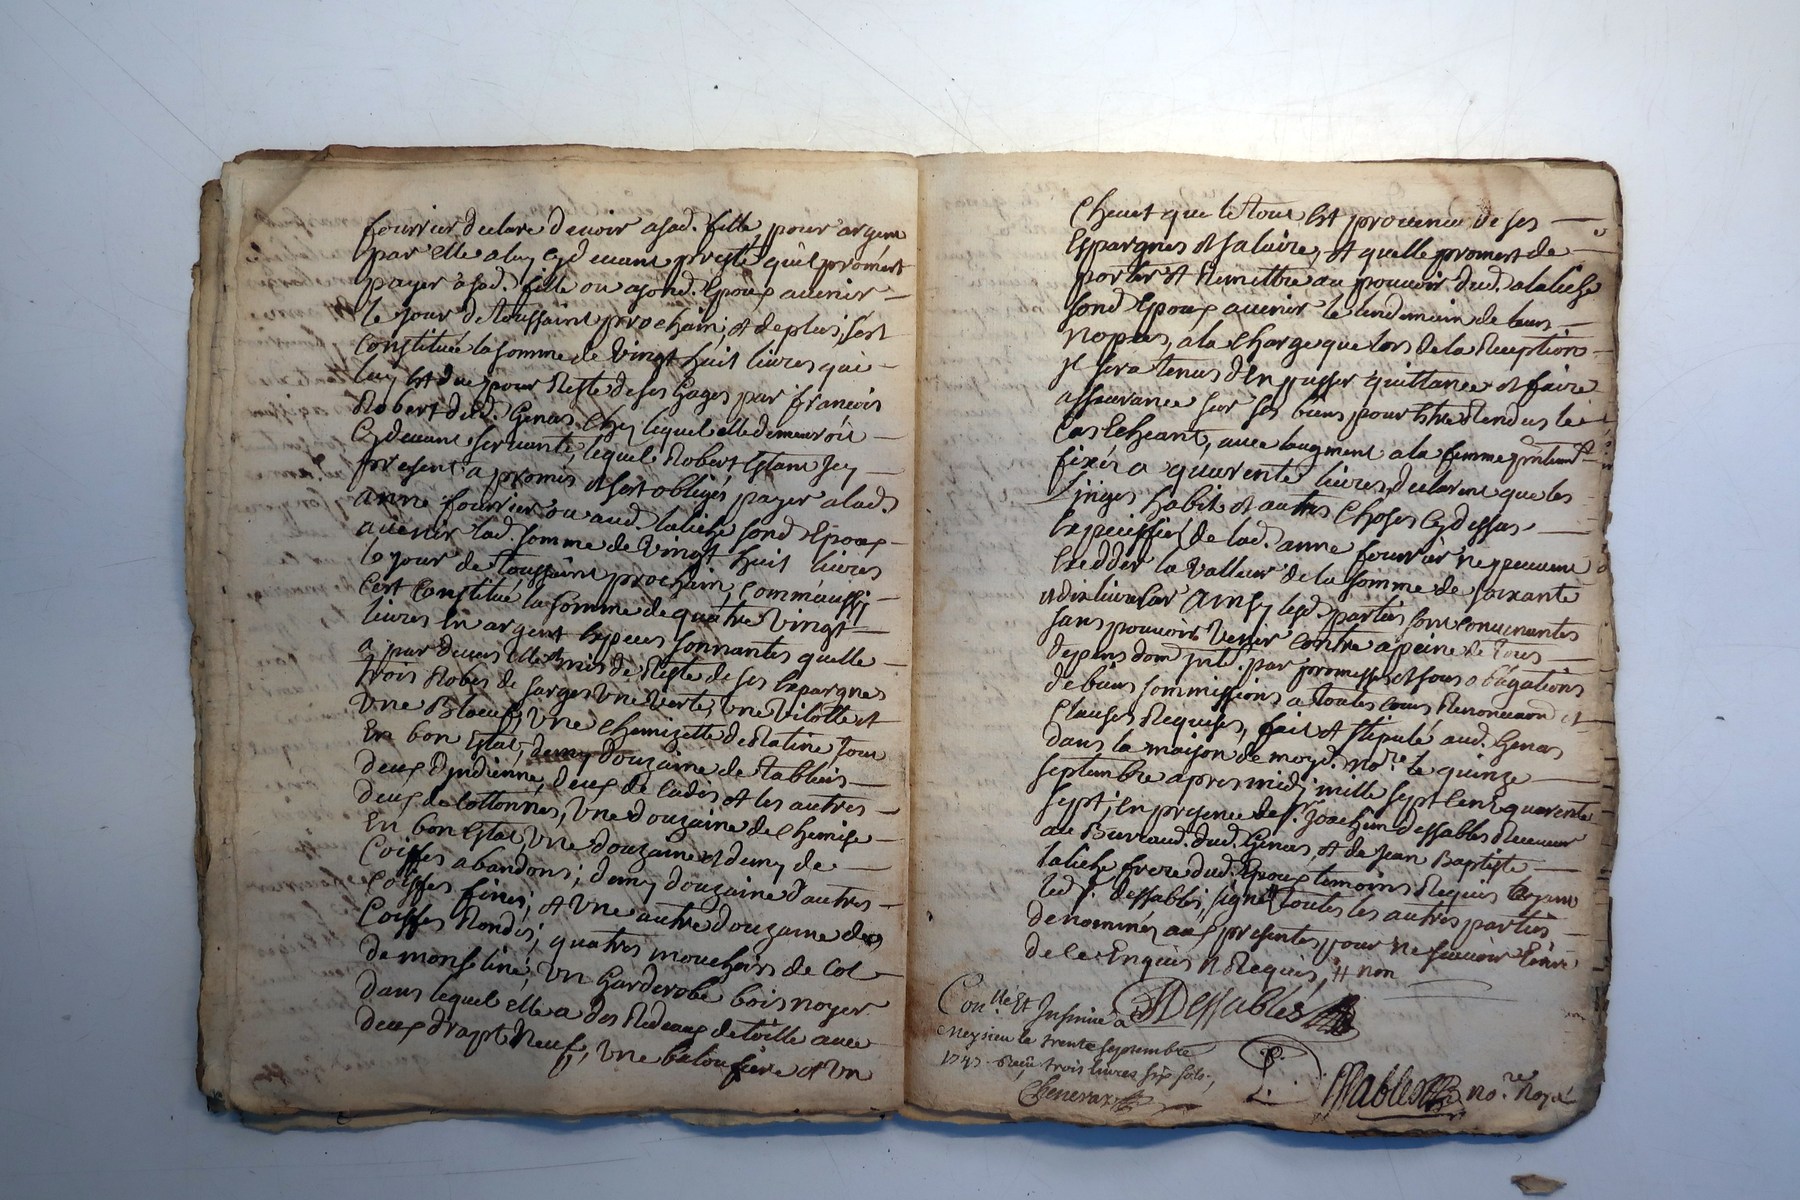 fourrier declare devoir asad. fille, pour argent
par elle a luy cydevant presté quil promest
payer à sad. fille ou asond. Epoux avenir
le jour de toussaint prochain, et de plus, sest
constituée la somme de vingt huit livres qui
luy est due pour Reste de ses Gages par francois
Robert dud. Genas chez lequel elle demeuroit
cydevant servante, lequel Robert Estant Icy
present a promis et sest obligé, payer alad.
anne fourrier ou aud. laliche sond Epoux
avenir lad. somme de vingt huit livres
le jour de toussaint prochain, comm'aussi
cest constitué la somme de quatre vingt
livres En argent Especes sonnantes quelle
a par devers elle et mis de Reste de ses Epargnes
trois Robes de sarges une verte, une violette et
une Bloeuf, une chemizette de Ratine tout
En bon Estat, demy douzaine de tabliers
deux d'jndienne, deux de cadis et les autres
deux de cottonnes, une douzaine de chemise
En bon Estat, une douzaine et demy de
Coiffes abandons; demy douzaine d'autres
Coiffes fines, et une autre douzaine de
Coiffes Rondes; quatres mouchoirs de Col
de monseline, un Garderobe bois noyer
dans lequel elle a des Rideaux de toille avec
deux drapt Neuf, une et un
Chevet que le tout Est provenu de ses
Espargnes et salaire, et quelle promest de
porter et Remettre au pouvoir dud. alaliche
sond Epoux avenir le lendemain de leurs
nopces, a la charge que lors de la Reception
jl sera tenus d'En passer quittance et faire
assurance sur ses biens pour Estre Rendus le
cas Echeant, avec laugment a la femme
fixés a quarente livres, declarent que les
Linges habits et autres choses cydessus
Expeciffiés de lad. anne fourrier ne peuvent
Exedder la valleur de la somme de soixante
et dix livres Car Ainsy lesd. parties sont convenantes
sans pouvoir venir contre a peine de tous
depens dom jnté. par promesses et sous obligations
de biens sommissions a toutes cours Renonciaon et
clauses Requises, fait et stipulé aud. Genas
dans la maison de moyd. nore le quinze
septembre apres midi, mille sept cent quarente
sept, En presence de sr. Joachim dessables Receveur
au Bureaud. dud. Genas, et de Jean Baptiste
laliche frere dud. Epoux temoins Requis
led sr. dessables, signé toutes les autres parties
denommés aux presentes, pour ne sçavoir Ecrire
de ce Enquis et Requis, et non
Conllé Et Insinué a DEssables
Meysieu le trente septembre
1747. Reçu trois livres six sols,
Chenevax
Dessables no.re Royal